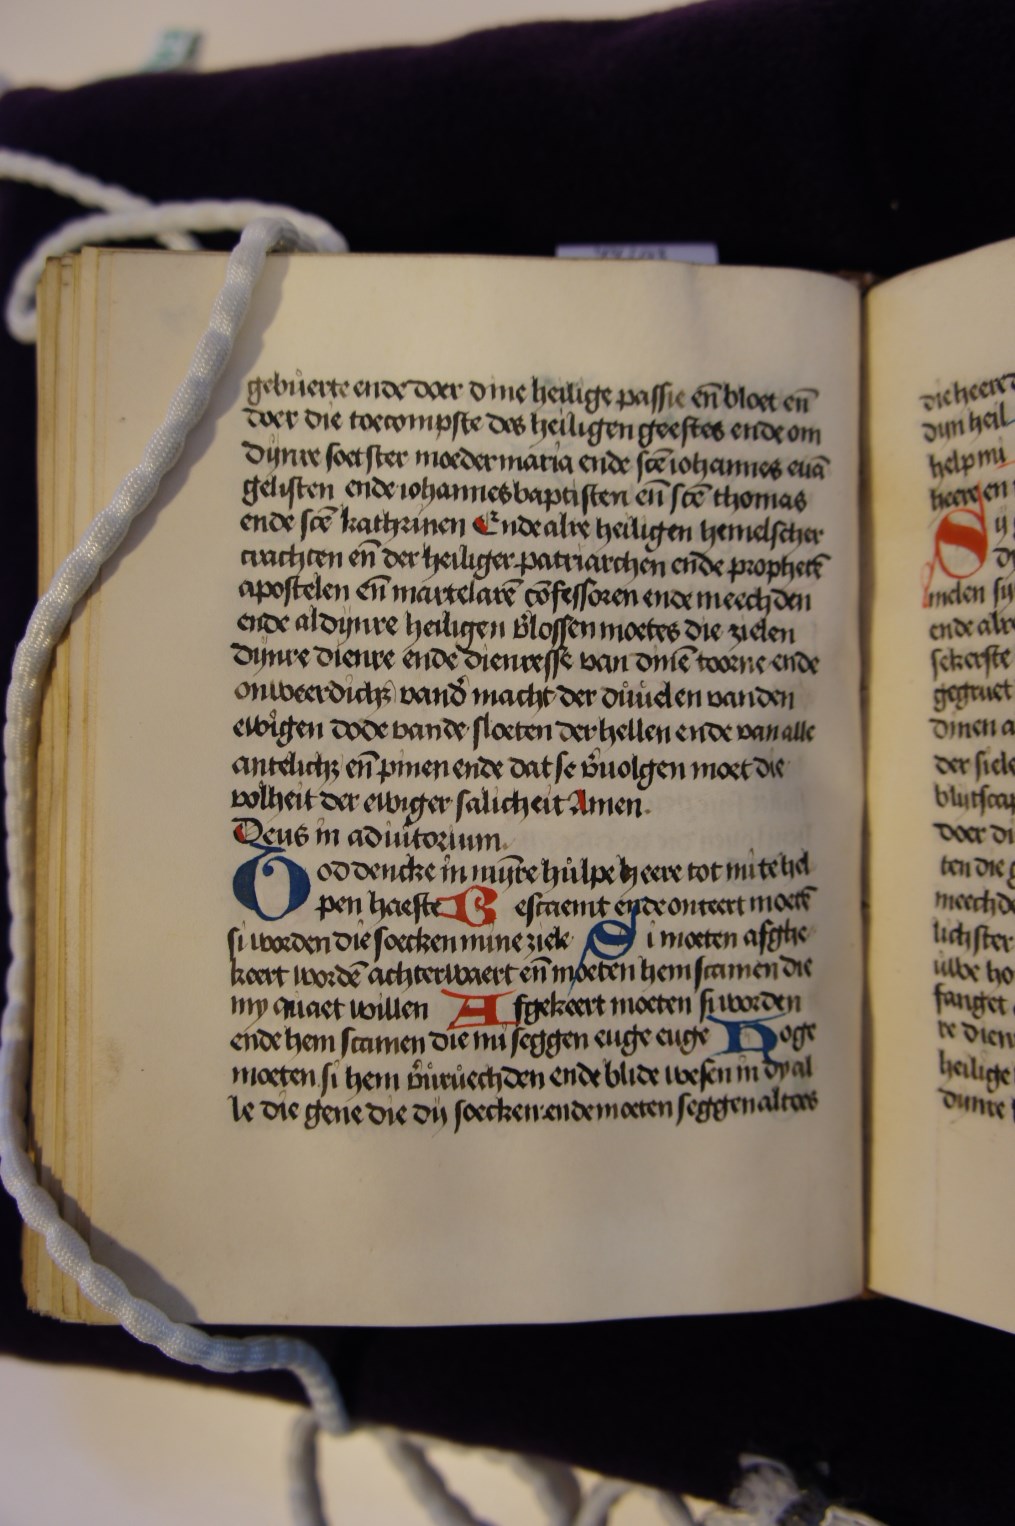 gebuerte ende doer dine heilige passie en̄ bloet en̄
doer die toecompste des heiligen geestes ende om
dijnre soetster moeder maria ende sc̄e iohannes euā
gelisten ende iohannes baptisten en̄ sc̄e thomas
ende sc̄e kathrinen Ende alre heiligen hemelscher
crachten en̄ der heiliger patriarchen ende prophetē
apostelen en̄ martelarē cōfessoren ende meechden
ende al dijnre heiligen v̄lossen moetes die zielen
dijnre dienre ende dienresse van dinē toorne ende
onweerdich; vand̄ macht der duuelen vanden
ewigen dode vande sloeten der hellen ende van alle
antelich; en̄ pinen ende dat se v̄uolgen moet die
volheit der ewiger salicheit Amen.
Deus in adiutorium.
God dencke in mijre hulpe heere tot mi te hel
pen haeste Gescaemt ende onteert moetē
si worden die soecken mine ziele Si moeten afghe
keert wordē achterwaert en̄ moeten hem scamen die
my quaet willen Afgekeert moeten si worden
ende hem scamen die mi seggen euge euge Hoge
moeten si hem v̄uruechden ende blide wesen in dy al
le die gene die dij soecken ende moeten seggen altoes
die heere
dijn heil
help mi
heere en
S ij
melen sij
ende alre
sekerste
gegruet
dinen a
der siele
blijtscap
doer di
ten die g
meechde
lichster
fanget
te dien
heilige
dunre